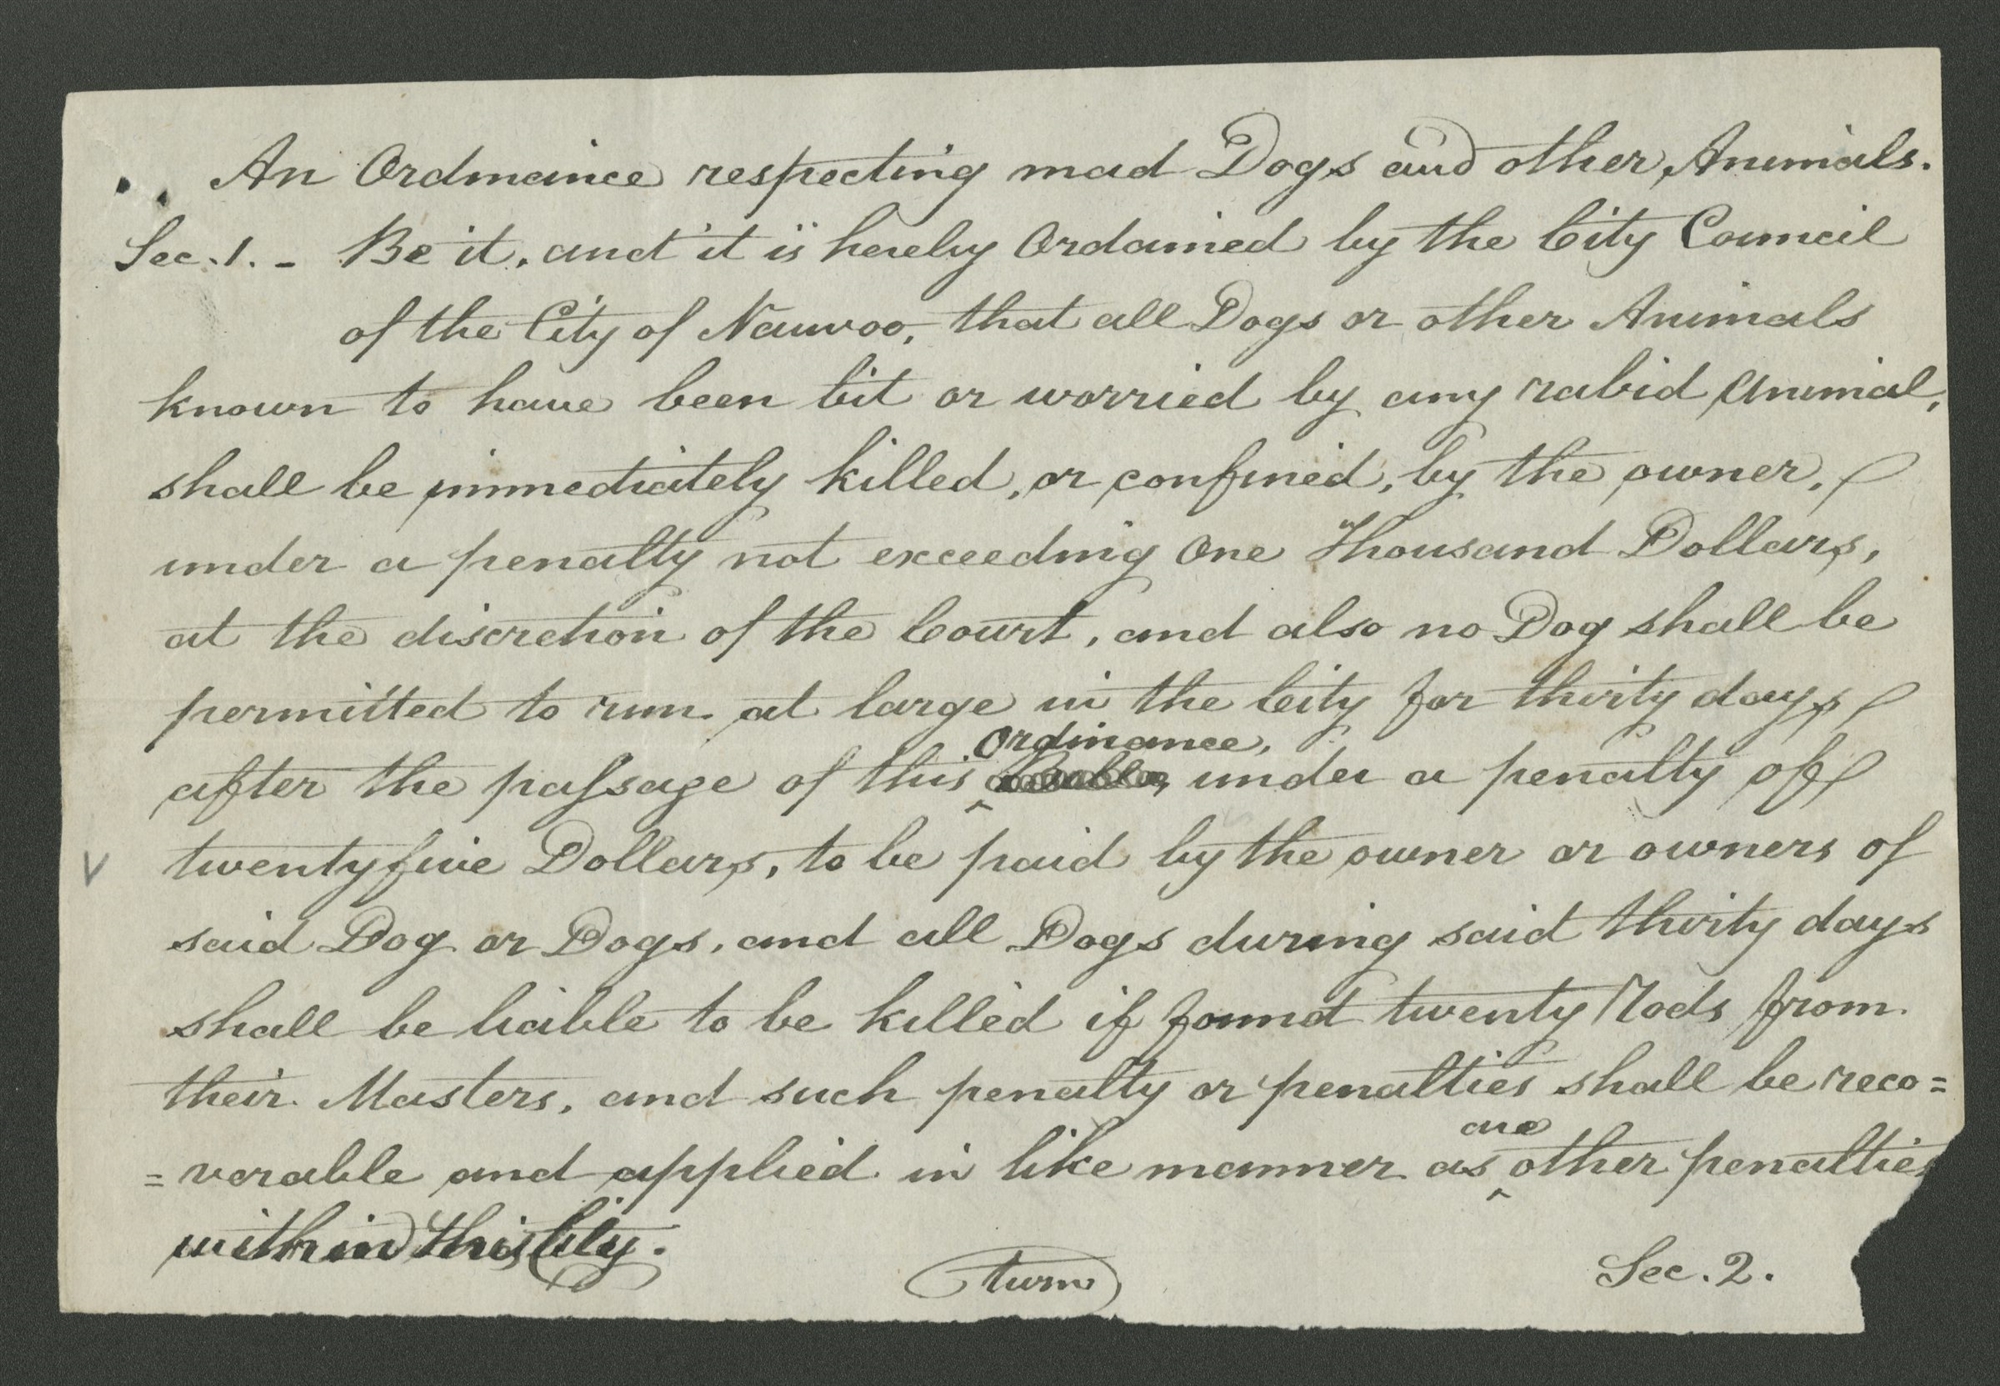 An Ordinance respecting mad Dogs and other Animals.
Sec. 1. - Be it, and it is hereby Ordained by the City Council
of the City of Nauvoo, that all Dogs or other Animals
known to have been bit or worried by any rabid Animal,
shall be immediately killed, or confined, by the owner,
under a penalty not exceeding One Thousand Dollars,
at the discretion of the Court, and also no Dog shall be
permitted to run at large in the City for thirty days
Ordinance,
after the passage of this under a penalty of
twentyfive Dollars, to be paid by the owner or owners of
said Dog or Dogs, and all Dogs during said thirty days
shall be liable to be killed if found twenty Rods from
their Masters, and such penalty or penalties shall be reco=
are
=verable and applied in like manner as other penalties
within this City.
turn
Sec. 2.